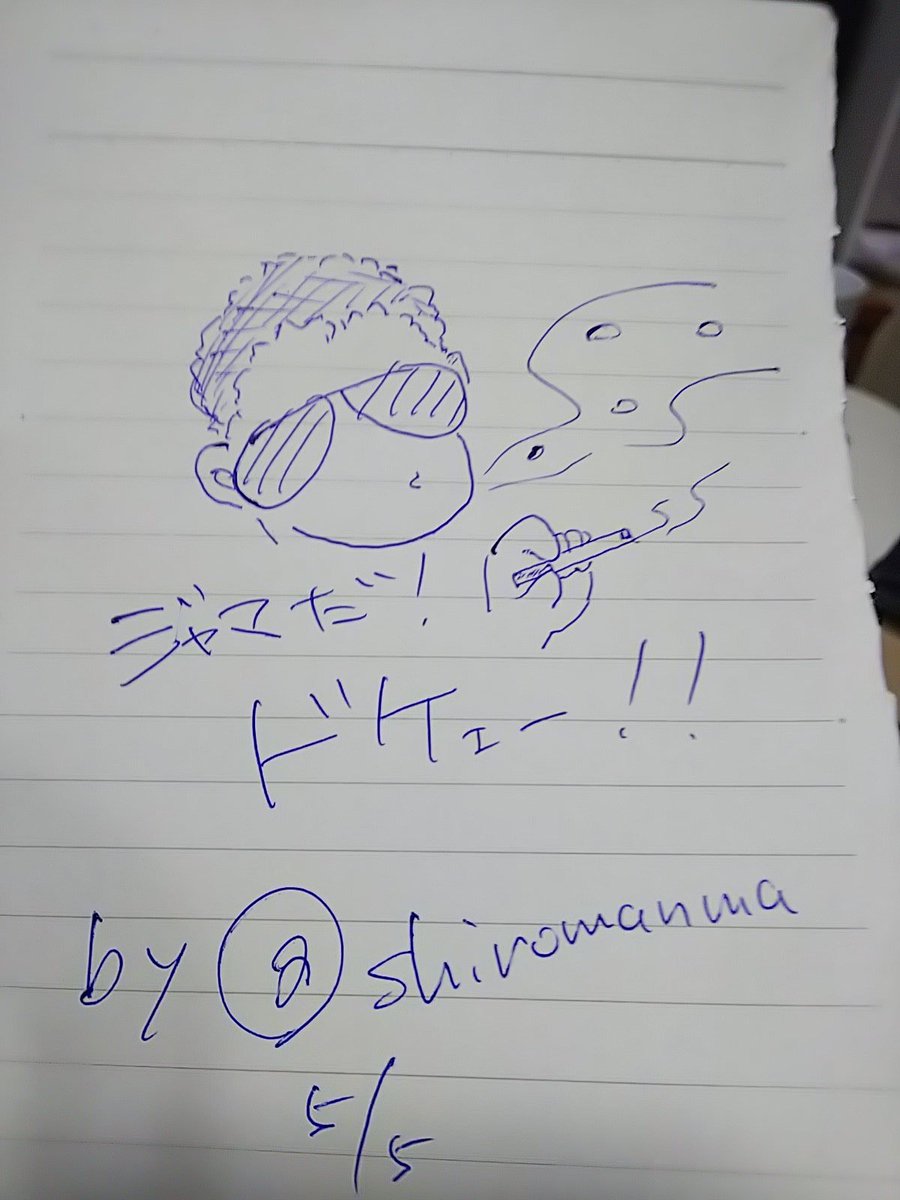 ジャマだ!
ドケェー!!
by @shiromanma
5/5